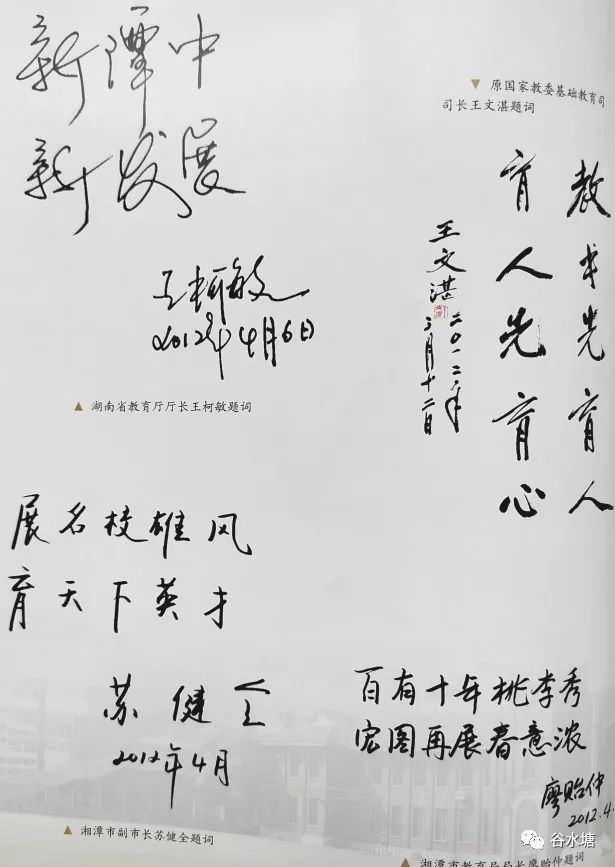 新潭中
新发展
王柯敏
2012年4月6日
▲ 湖南省教育厅厅长王柯敏题词
▼ 原国家教委基础教育司
司长王文湛题词
教书先育人
育人先育心
王文湛
二〇一二年
三月十二日
展名校雄风
育天下英才
苏健全
2012年4月
▲ 湘潭市副市长苏健全题词
百有十年桃李秀
宏图再展春意浓
廖贻仲
2012.4.
▲ 湘潭市教育局局长廖贻仲题词
谷水塘